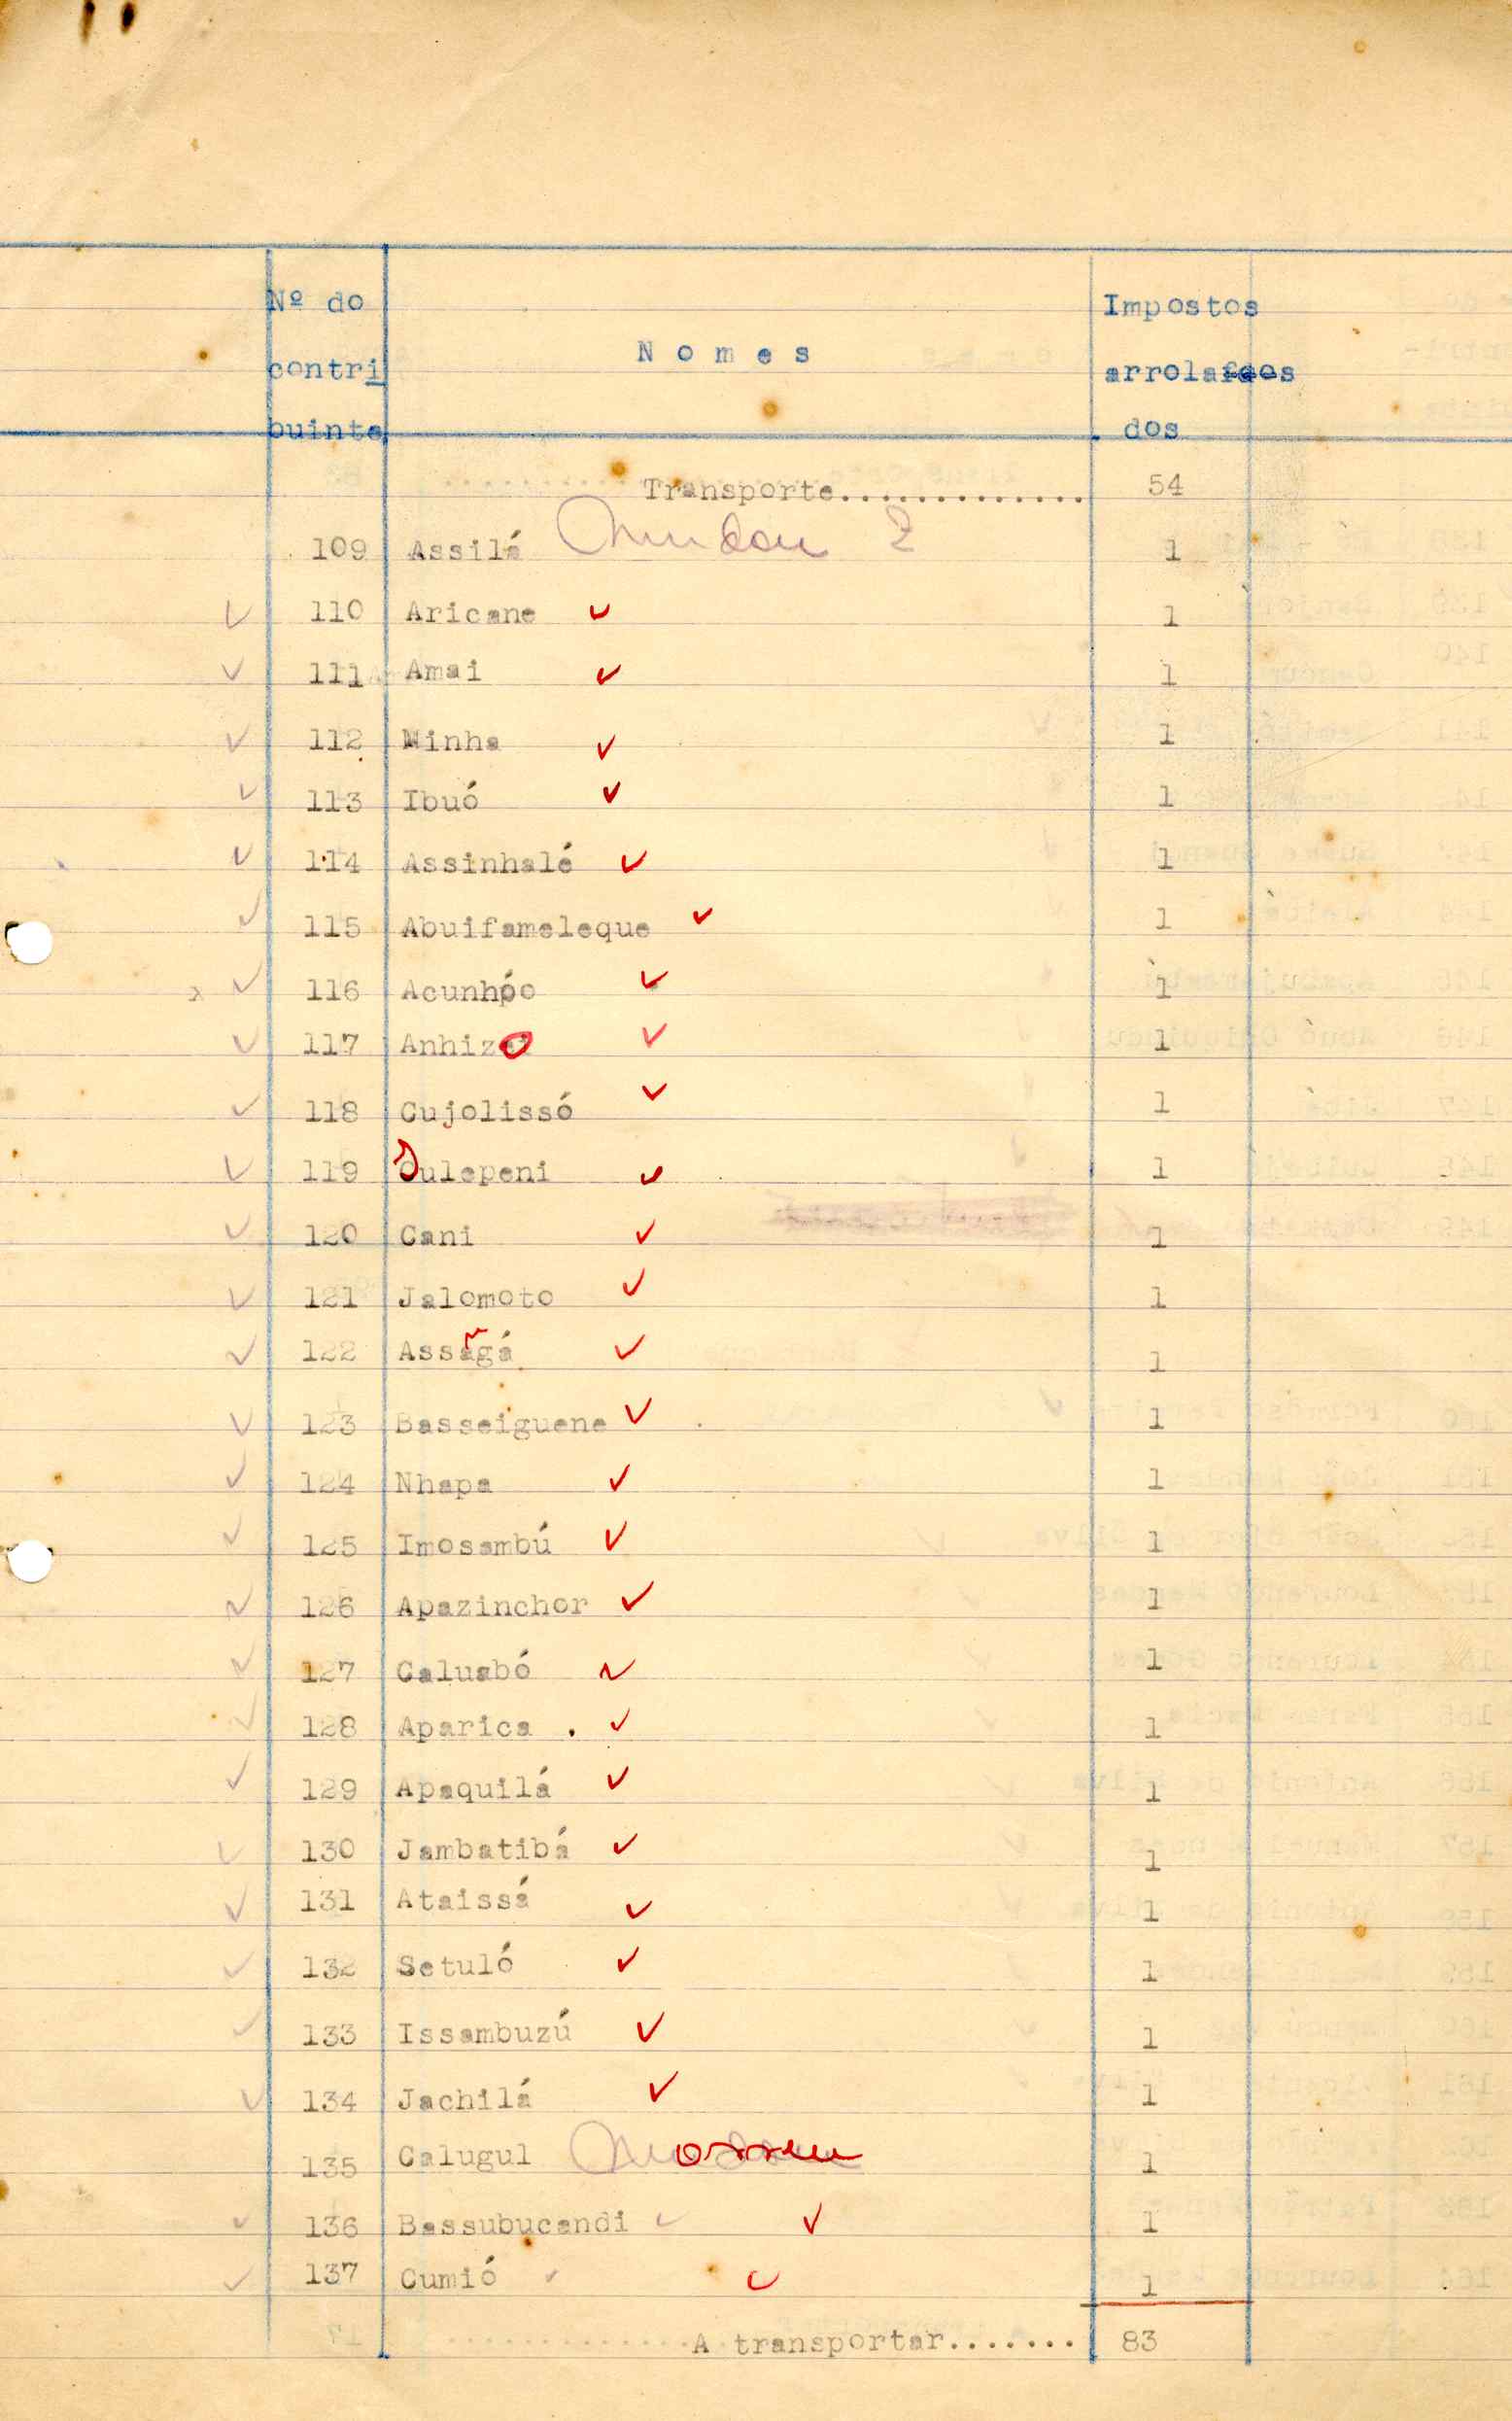 Nº do
contri
buinte
Nomes
Impostos
arrola
dos
Transporte............. 54
109 Assilá 1
110 Aricane 1
111 Amai 1
112 Minha 1
113 Ibuó 1
114 Assinhalé 1
115 Abuifameleque 1
116 Acunhóo 1
117 Anhizo 1
118 Cujolissó 1
119 Julepeni 1
120 Cani 1
121 Jalomoto 1
122 Assagá 1
123 Basseiguene 1
124 Nhapa 1
125 Imosambú 1
126 Apazinchor 1
127 Caluabó 1
128 Aparica . 1
129 Apaquilá 1
130 Jambatibá 1
131 Ataissá 1
132 Setuló 1
133 Issambuzú 1
134 Jachilá 1
135 Calugul 1
136 Bassubucandi 1
137 Cumió 1
A transportar....... 83